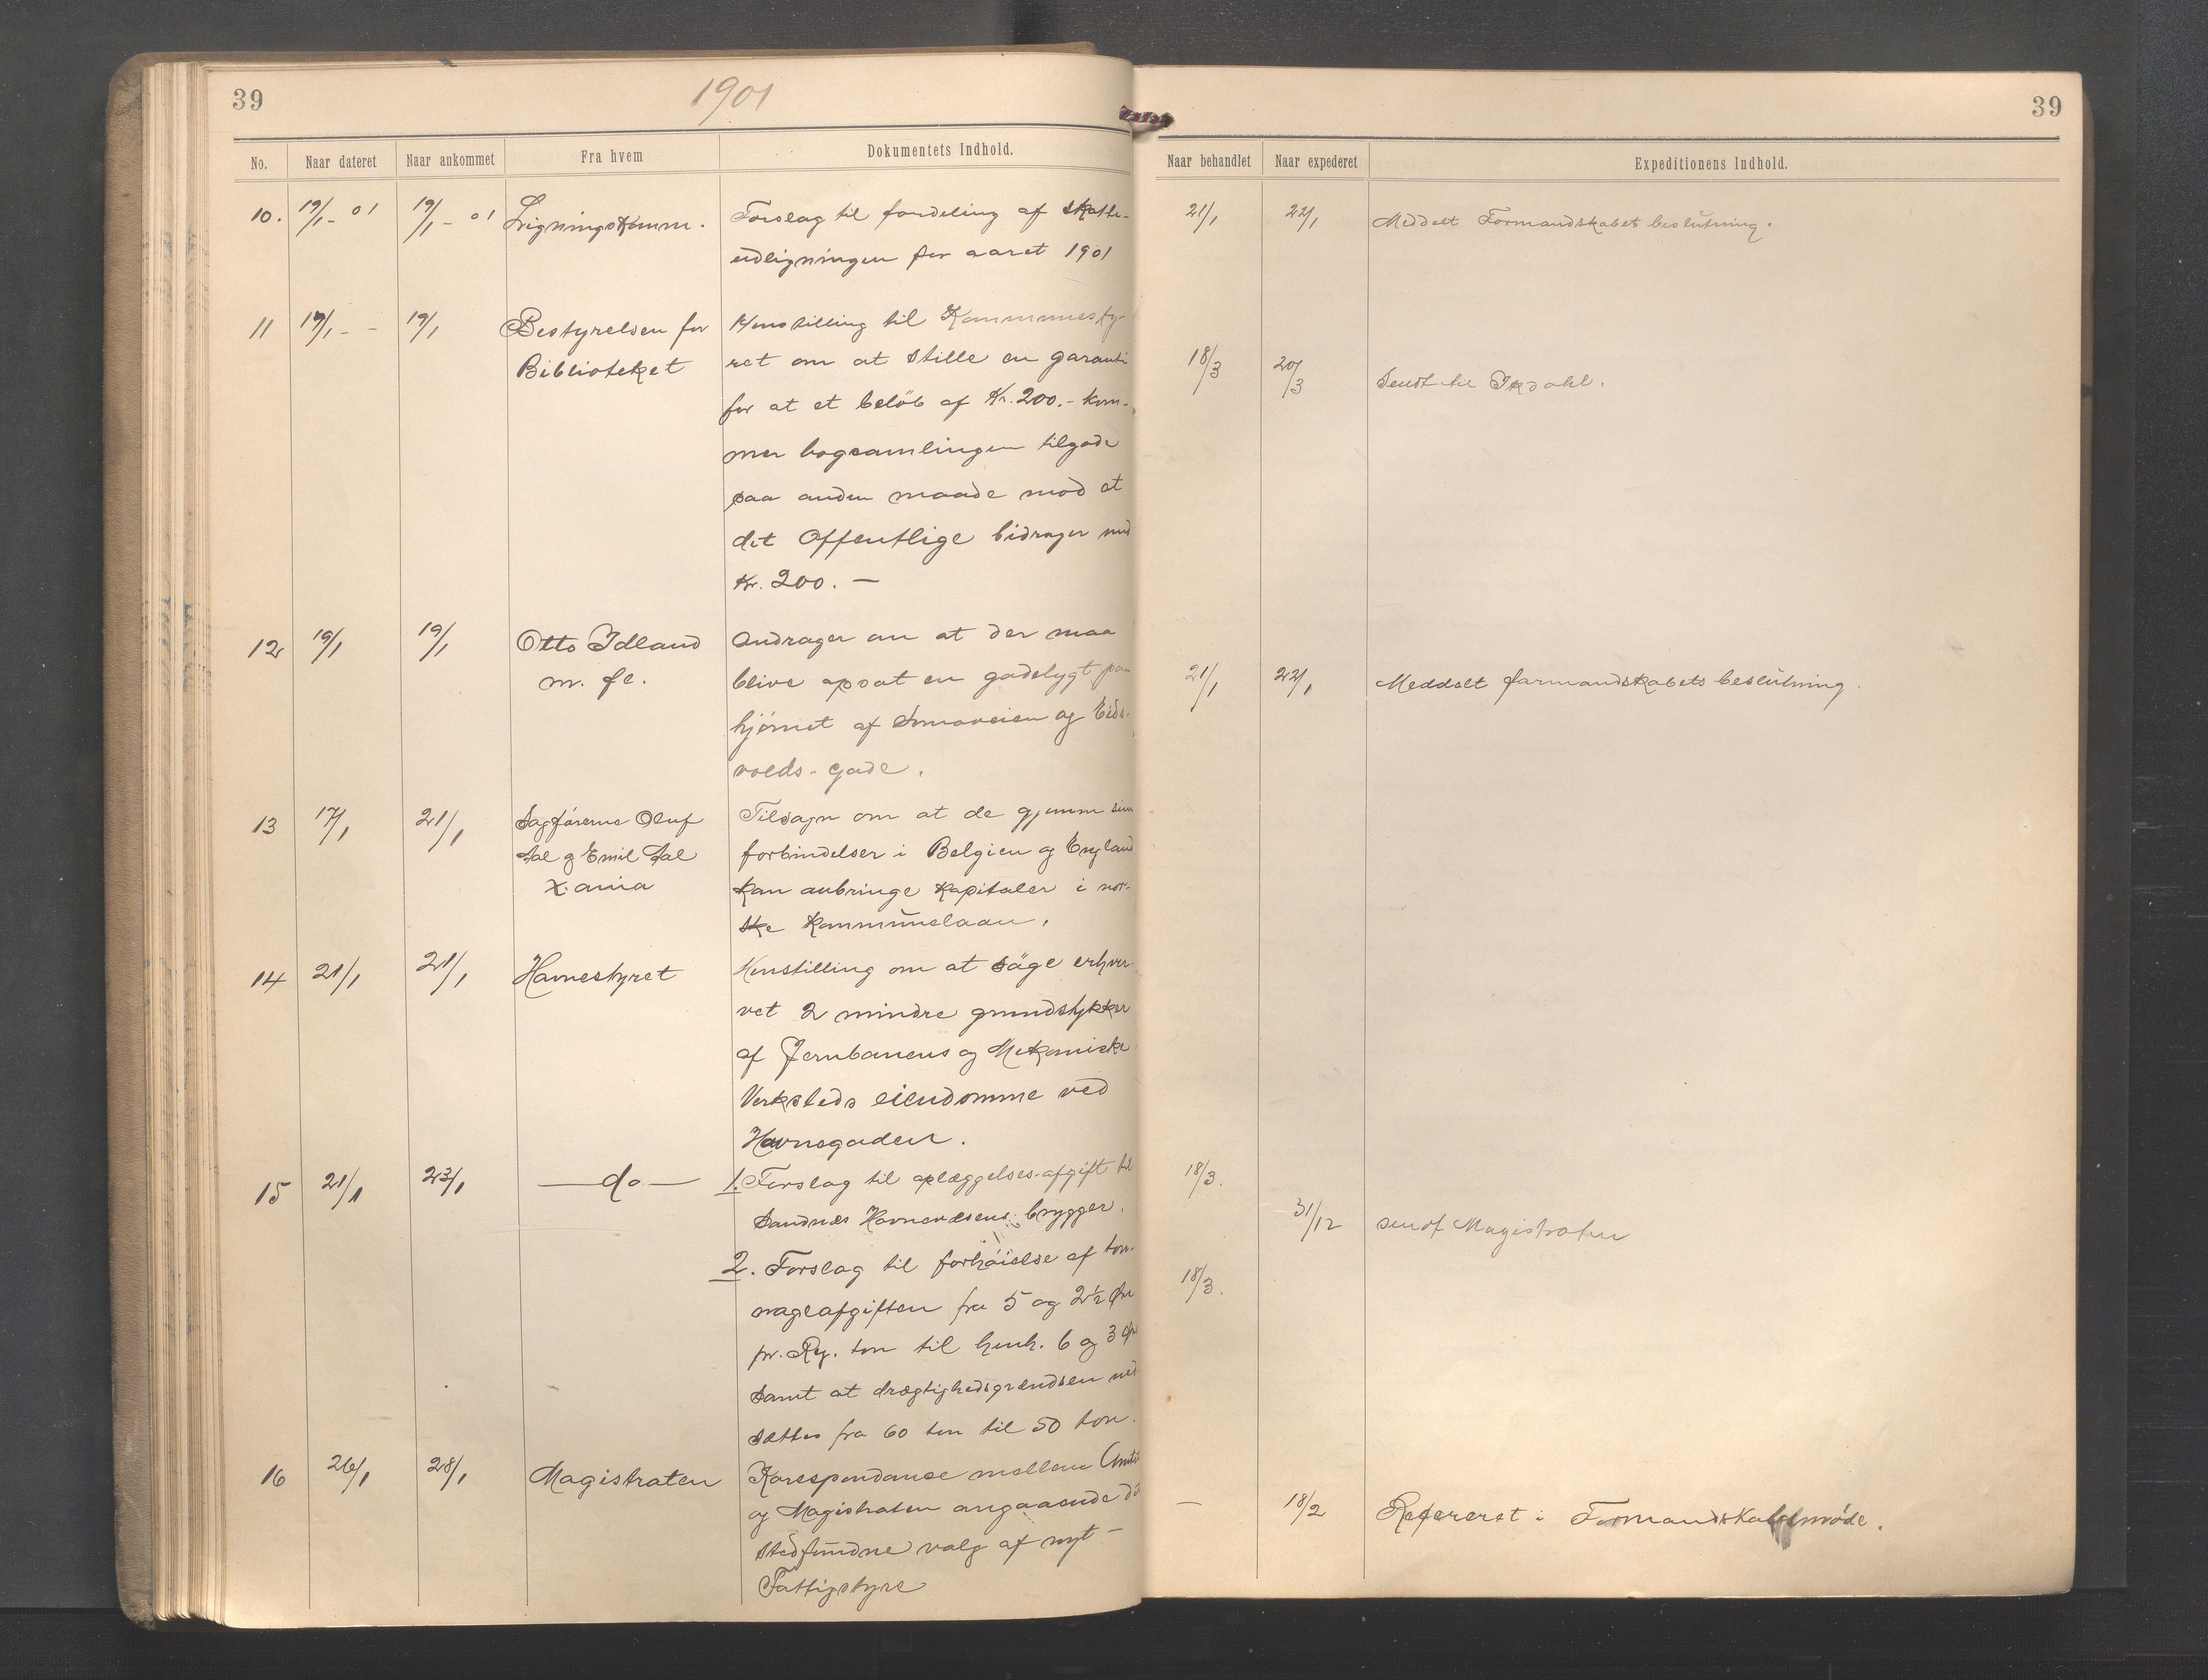 39
1901
No. Naar dateret Naar ankommet Fra hvem Dokumentets Indhold.
10. 19/1 - 01 19/1 - 01 Ligningskomm. Forslag til fordeling af skatte-
udligningen for aaret 1901
11 19/1 - - 19/1 Bestyrelsen for Henstilling til Kommunesty-
Biblioteket ret om at stille en garanti
for at et beløb af Kr. 200.- kom-
mer bogsamlingen tilgode
paa anden maade mod at
det Offentlige bidrager med
Kr. 200. —
12 19/1 19/1 Otto Idland Andrager om at der maa
m. fl. blive opsat en gadelygt paa
hjørnet af Somaveien og Eids-
volds-gade.
13 17/1 21/1 Sagførerne Oluf Tilsagn om at de gjennem sine
Aal og Emil Aal forbindelser i Belgien og England
X.ania kan anbringe Kapitaler i nor-
ske Kommunelaan.
14 21/1 21/1 Havnestyret Henstilling om at søge erhver-
vet 2 mindre grundstykker
af Jernbanens og Mekaniske
Verksteds eiendomme ved
Havnegaden.
15 21/1 23/1 — do — 1. Forslag til oplæggelses-afgift til
Sandnæs Havnevæsens brygger.
2. Forslag til forhøielse af ton-
nageafgiften fra 5 og 2½ Øre
pr. Rg. ton til henh. 6 og 3 Øre
samt at drægtighedsgrændsen ned
sættes fra 60 ton til 50 ton.
16 26/1 28/1 Magistraten Korespondanse mellem Amtet
og Magistraten angaaende
stedfundne valg af nyt
Fattigstyre
39
Naar behandlet Naar expederet Expeditionens Indhold.
21/1 22/1 Meddelt Formandskabets beslutning.
18/3 20/3 Sendt til
21/1 22/1 Meddelt formandskabets beslutning.
18/3.
31/12 sendt Magistraten
18/3.
— 18/2 Refereret i Formandskabsmøde.